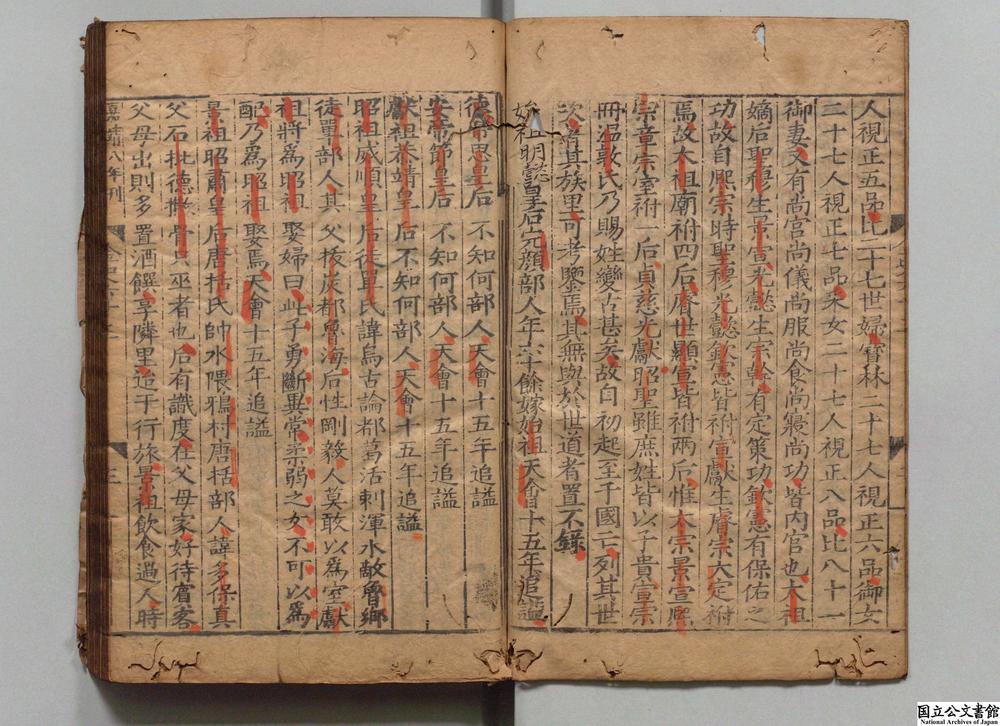 人視正五品比二十七世婦寶林二十七人視正六品御女
二十七人視正七品采女二十七人視正八品比八十一
御妻又有尚宮尚儀尚服尚食尚寢尚功皆内官也太祖
嫡后聖穆生景宣光懿生宗幹有定策功欽憲有保佑之
功故自熙宗時聖穆光懿欽憲皆祔宣獻生睿宗大定祔
焉故太祖廟祔四后睿世顯宣皆祔兩后惟太宗景宣熙
宗章宗室祔一后貞慈光獻昭聖雖庶姓皆以子貴宣宗
冊溫敦氏乃賜姓變古甚矣故自初起至于國亡列其世
次著其族里可考鑒焉其無與於世道者置不錄
始祖明懿皇后完顔部人年六十餘嫁始祖天會十五年追謚
德帝思皇后不知何部人天會十五年追謚
安帝節皇后不知何部人天會十五年追謚
獻祖恭靖皇后不知何部人天會十五年追謚
昭祖威順皇后徒單氏諱烏古論都葛活剌渾水敵魯鄉
徒單部人其父拔炭都魯海后性剛毅人莫敢以爲室獻
祖將爲昭祖娶婦曰此子勇斷異常柔弱之女不可以爲
配乃爲昭祖娶焉天會十五年追謚
景祖昭肅皇后唐括氏帥水隈鴉村唐括部人諱多保真
父石批德撒骨只巫者也后有識度在父母家好待賓客
父母出則多置酒饌享隣里迨于行旅景祖飲食過人時
嘉靖八年刊
三
国立公文書館
National Archives of Japan